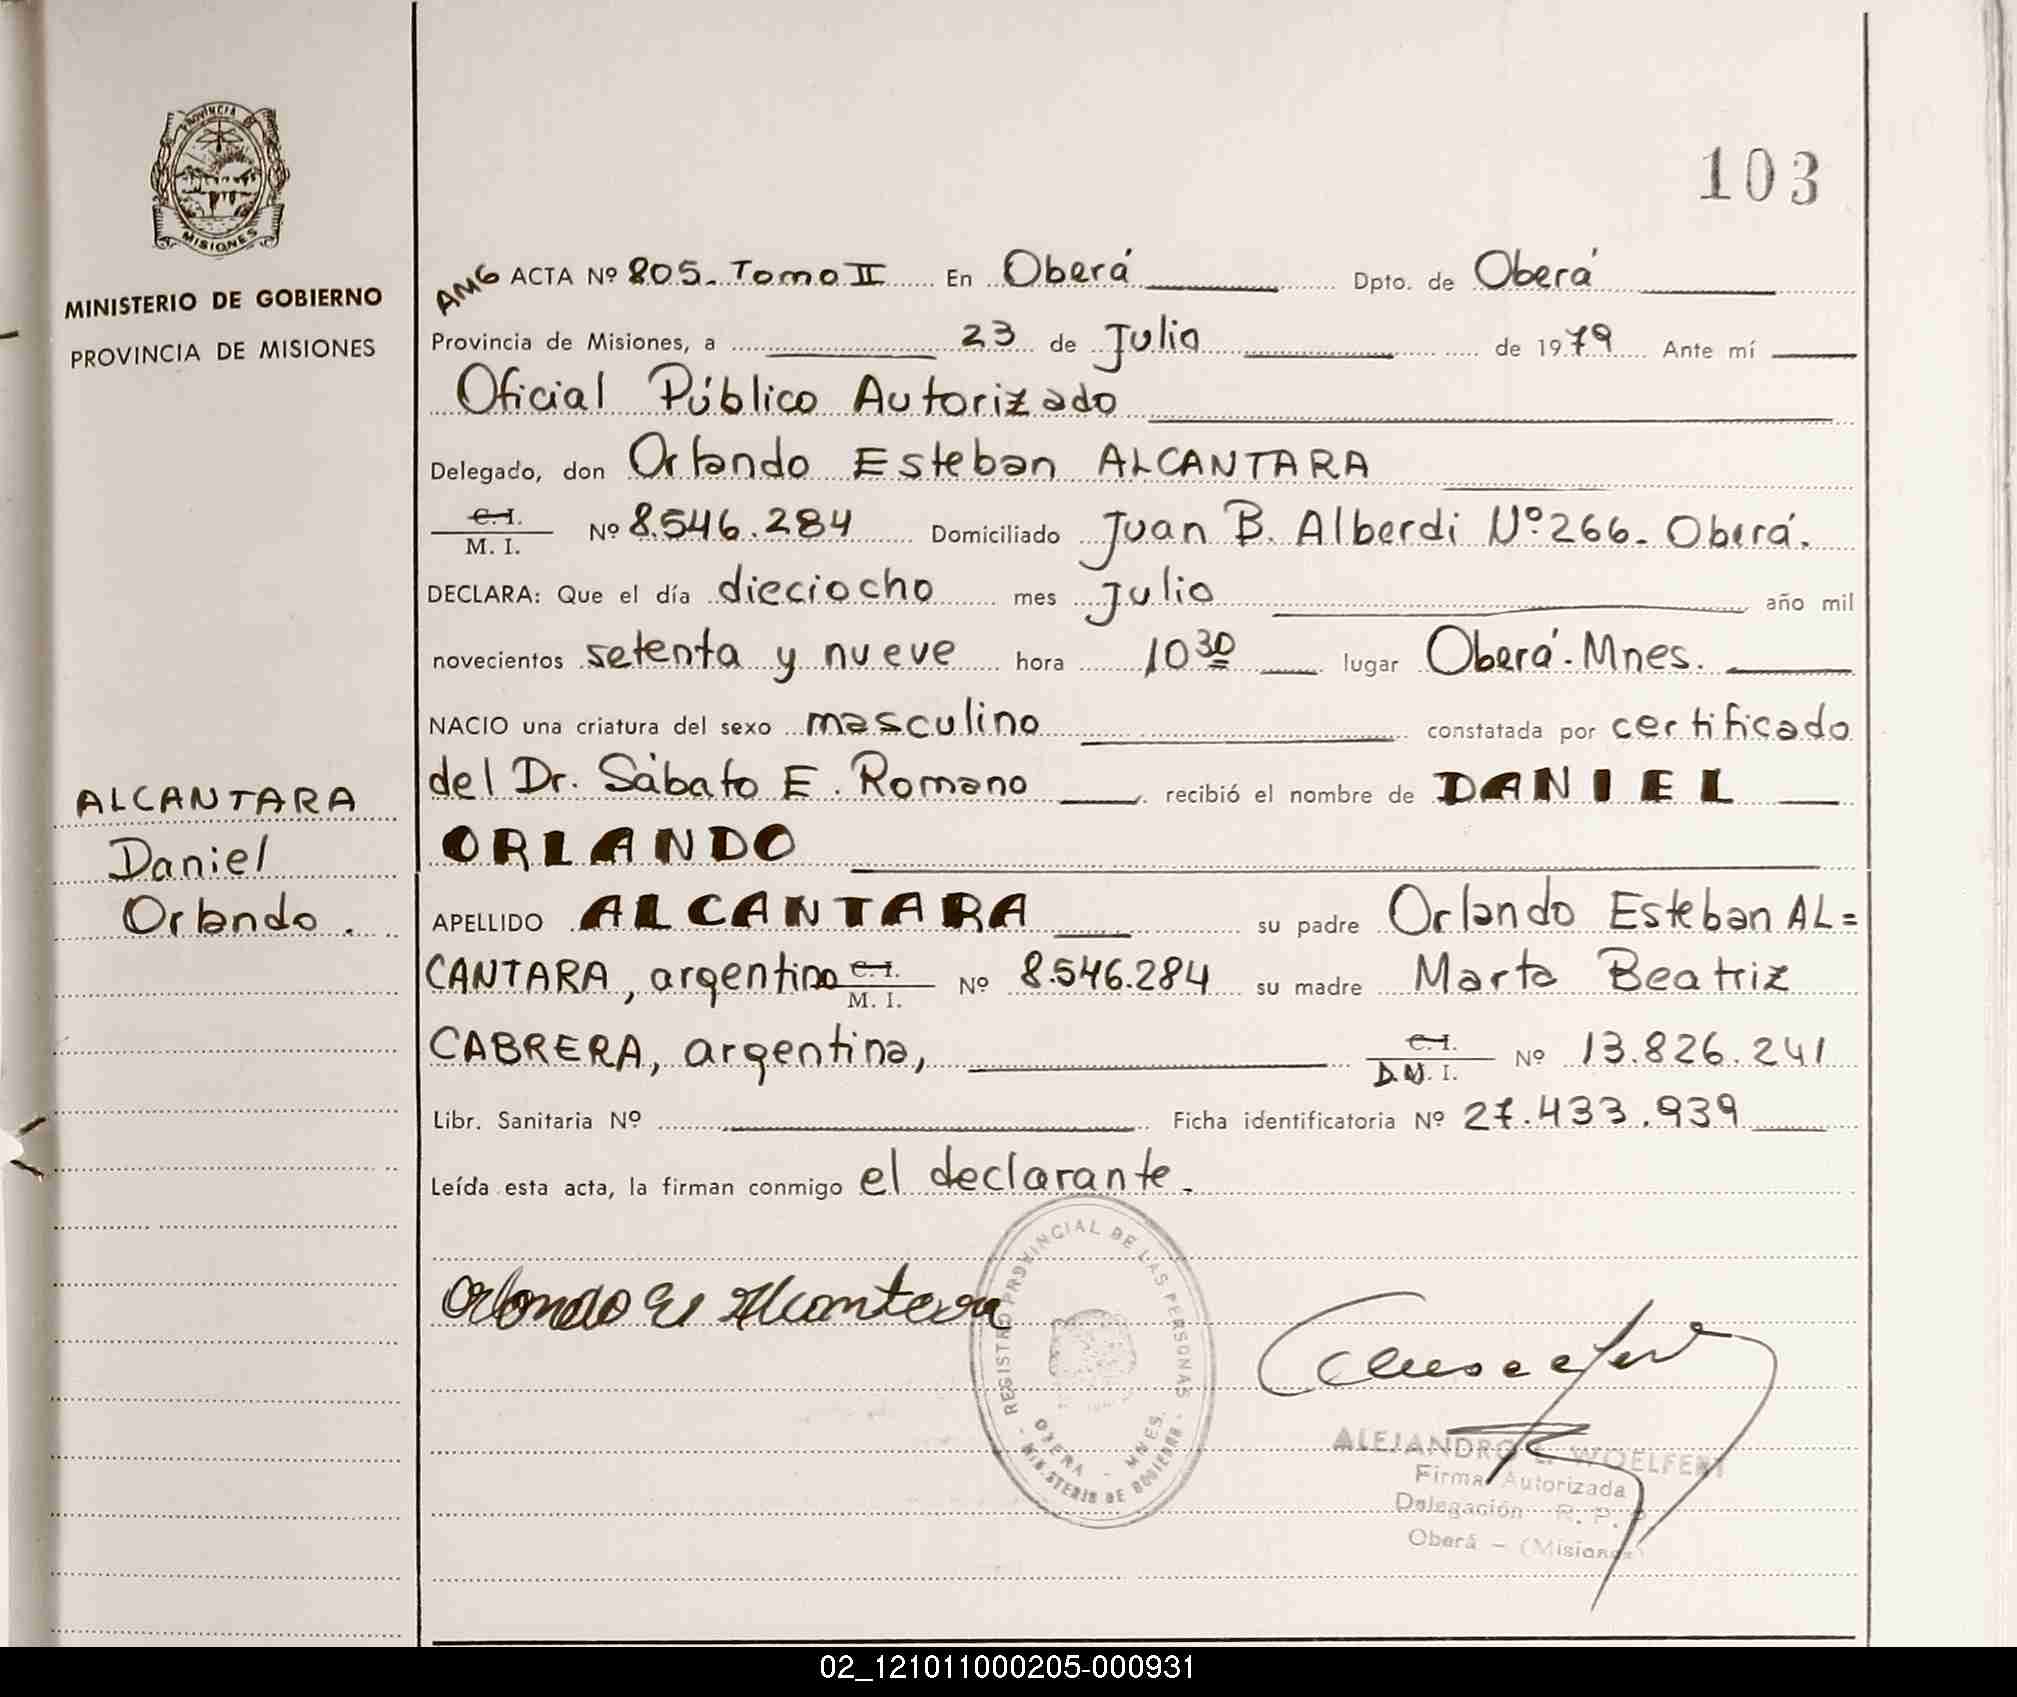 PROVINCIA DE
MISIONES
MINISTERIO DE GOBIERNO
PROVINCIA DE MISIONES
ALCANTARA
Daniel
Orlando.
103
AMG ACTA Nº 805. Tomo II En Oberá Dpto. de Oberá
Provincia de Misiones, a 23 de Julio de 1979 Ante mí
Oficial Público Autorizado
Delegado, don Orlando Esteban ALCANTARA
C. I.
M. I. Nº 8.546.284 Domiciliado Juan B. Alberdi Nº 266. Oberá.
DECLARA: Que el día dieciocho mes julio año mil
novecientos setenta y nueve hora 10 30 lugar Oberá. Mnes.
NACIO una criatura del sexo masculino constatada por certificado
del Dr. Sábato E. Romano recibió el nombre de DANIEL
ORLANDO
APELLIDO ALCANTARA su padre Orlando Esteban AL=
CANTARA, argentino C. I. M. I. Nº 8.546.284 su madre Marta Beatriz
CABRERA, argentina, C. I. D.N. I. Nº 13.826.241
Libr. Sanitaria Nº Ficha identificatoria Nº 27.433.939
Leída esta acta, la firman conmigo el declarante.
Orlando E Alcantara
REGISTRO PROVINCIAL DE LAS PERSONAS
OBERA - MNES.
- MINISTERIO DE GOBIERNO -
ALEJANDRO WOELFERT
Firma Autorizada
Delegación R. P.
Oberá - (Misiones)
02_121011000205-000931